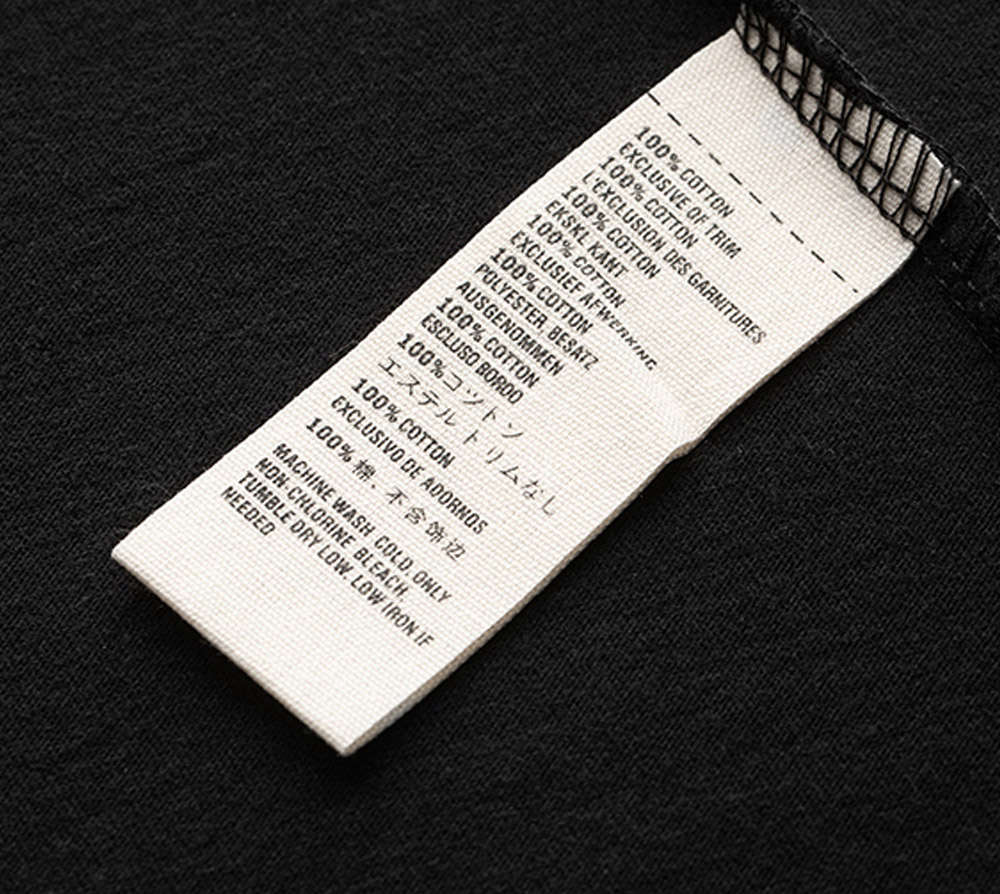 100% COTTON
EXCLUSIVE OF TRIM
100% COTTON
L'EXCLUSION DES GARNITURES
100% COTTON
EKSKL KANT
100% COTTON
EXCLUSIEF AFWERKING
100% COTTON
POLYESTER, BESATZ
AUSGENOMMEN
100% COTTON
ESCLUSO BORDO
100%コットン
エステル トリムなし
100% COTTON
EXCLUSIVO DE ADORNOS
100% 棉，不含饰边
MACHINE WASH COLD. ONLY
NON-CHLORINE BLEACH.
TUMBLE DRY LOW. LOW IRON IF
NEEDED